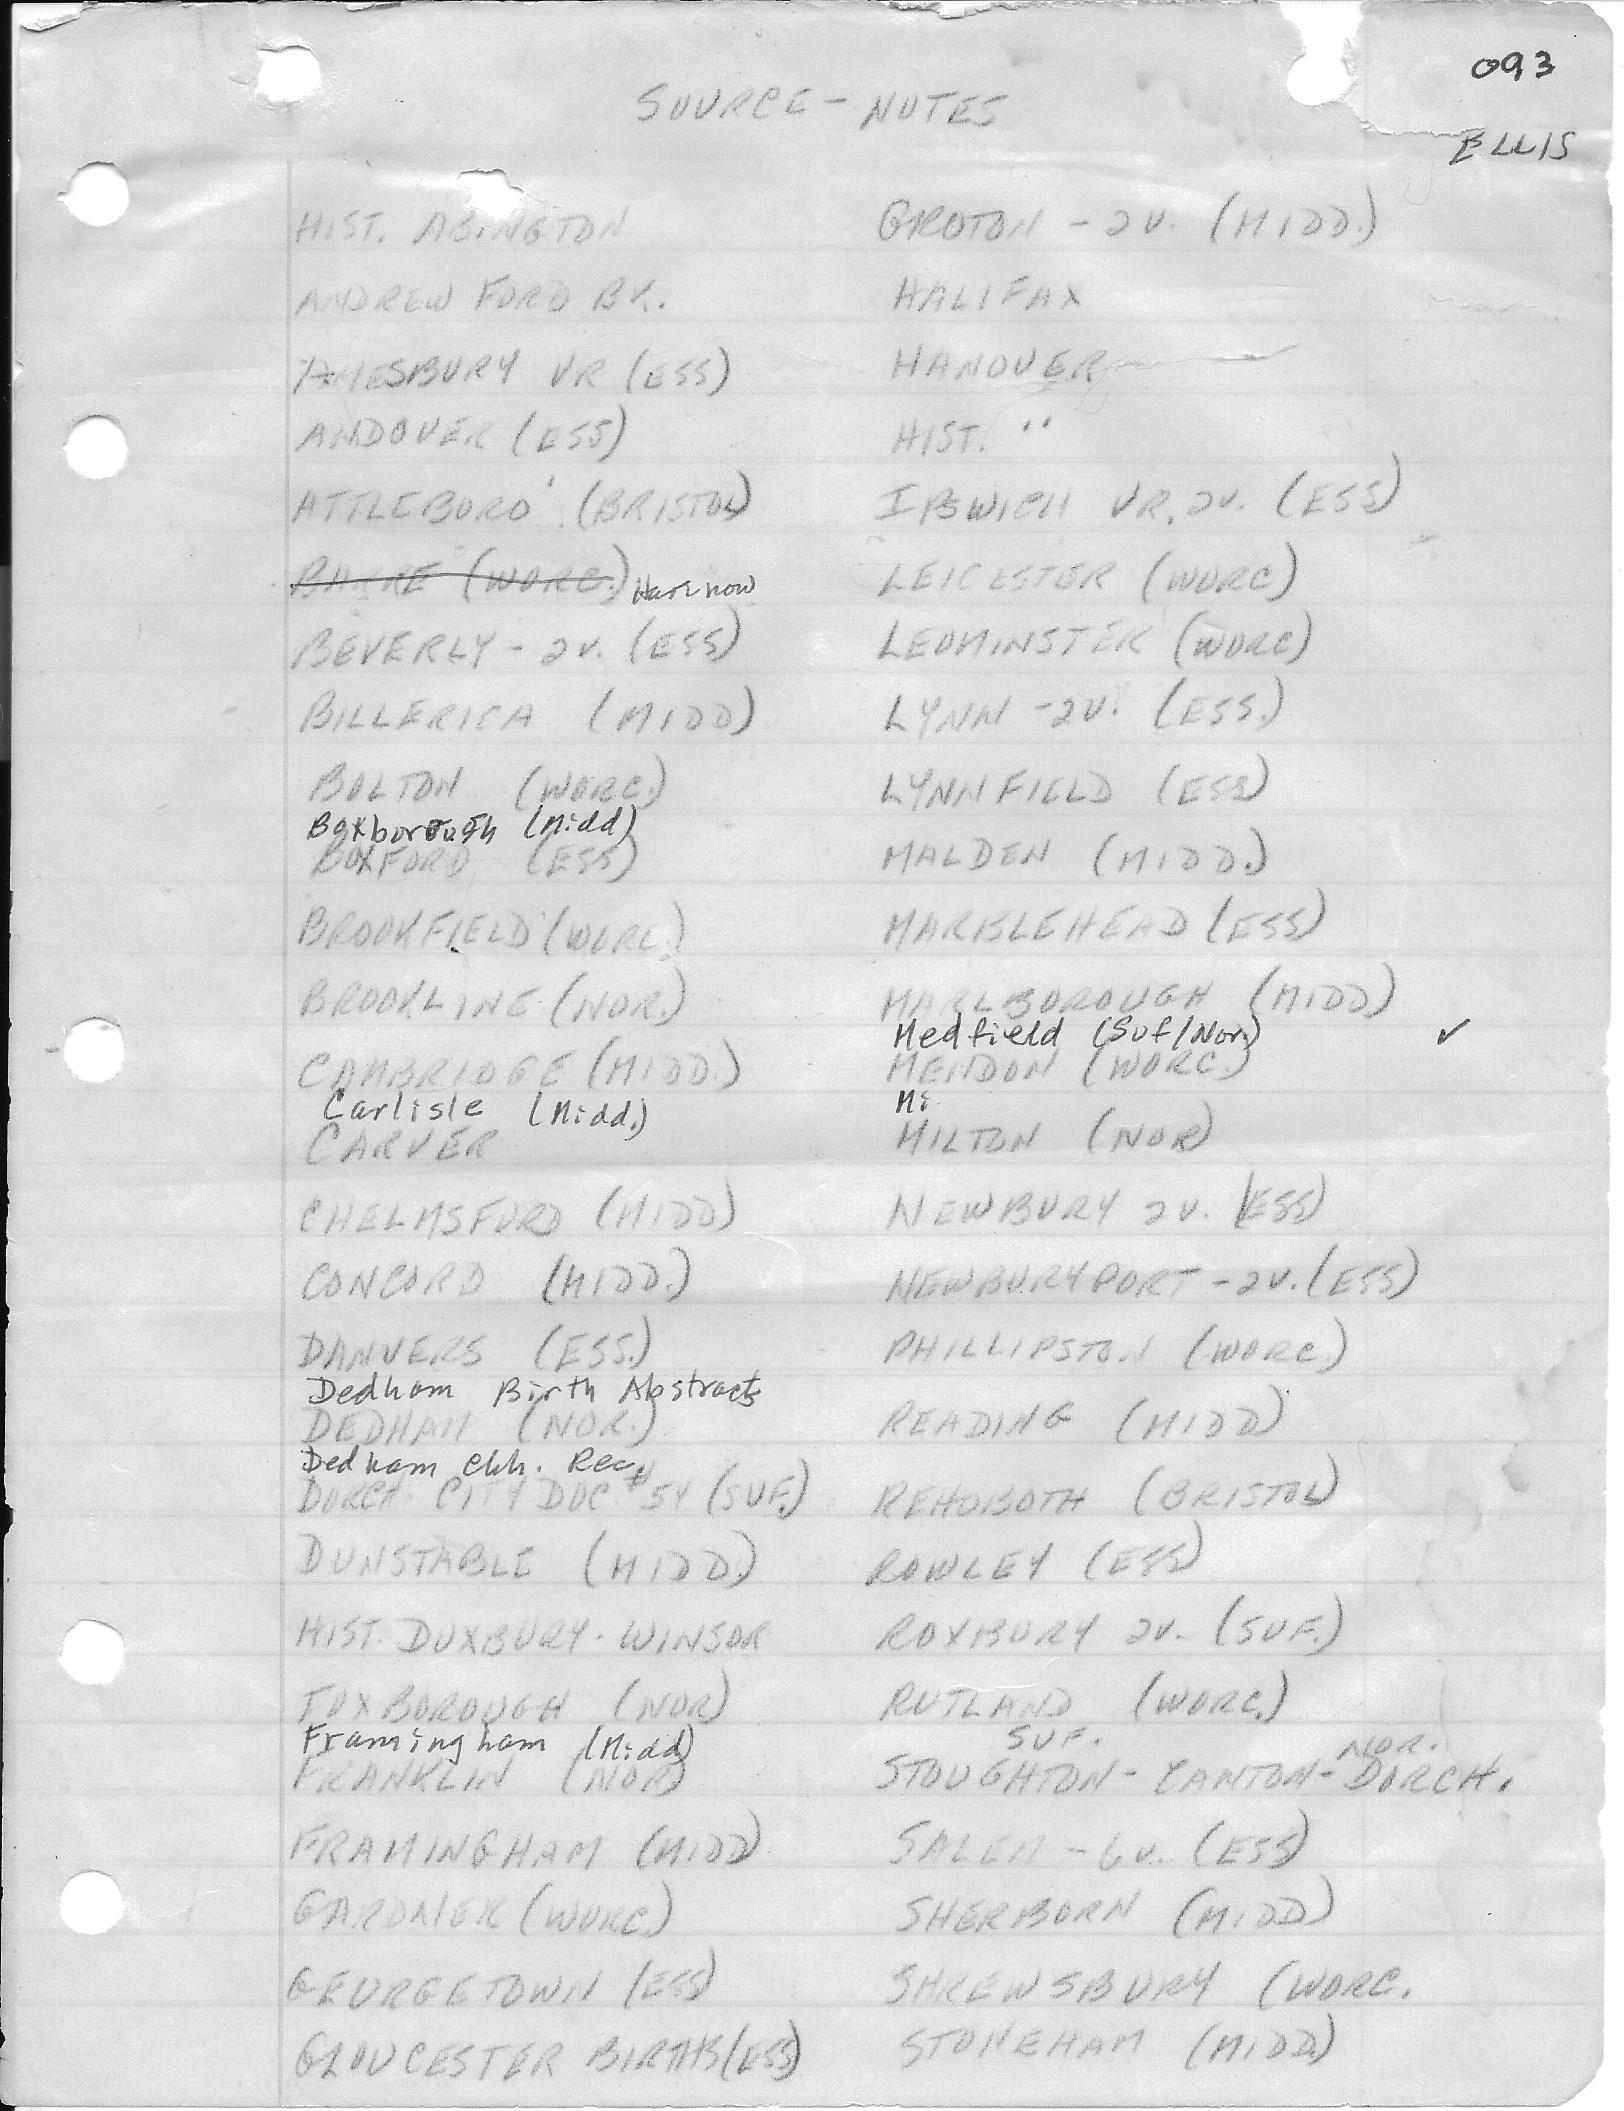 093
SOURCE - NOTES
ELLIS
HIST. ABINGTON
ANDREW FORD BK.
AMESBURY VR (ESS)
ANDOVER (ESS)
ATTLEBORO' (BRISTOL)
BARRE (WORC.) Have now
BEVERLY - 2v. (ESS)
BILLERICA (MIDD)
BOLTON (WORC.)
Boxborough (Midd)
BOXFORD (ESS)
BROOKFIELD (WORC.)
BROOKLINE (NOR.)
CAMBRIDGE (MIDD.)
Carlisle (Midd.)
CARVER
CHELMSFORD (MIDD)
CONCORD (MIDD.)
DANVERS (ESS.)
Dedham Birth Abstracts
DEDHAM (NOR.)
Dedham Chh. Rec.
DORCH. CITY DOC #54 (SUF.)
DUNSTABLE (MIDD.)
HIST. DUXBURY - WINSOR
FOXBOROUGH (NOR)
Framingham (Midd)
FRANKLIN (NOR)
FRAMINGHAM (MIDD)
GARDNER (WORC.)
GEORGETOWN (ESS)
GLOUCESTER BIRTHS (ESS)
GROTON - 2v. (MIDD.)
HALIFAX
HANOVER
HIST. "
IPSWICH VR. 2v. (ESS)
LEICESTER (WORC)
LEOMINSTER (WORC)
LYNN - 2v. (ESS.)
LYNNFIELD (ESS)
MALDEN (MIDD.)
MARBLEHEAD (ESS)
MARLBOROUGH (MIDD)
Medfield (Suf/Nor) ✓
MENDON (WORC.)
Mi
MILTON (NOR)
NEWBURY 2v. (ESS)
NEWBURYPORT - 2v. (ESS)
PHILLIPSTON (WORC.)
READING (MIDD)
REHOBOTH (BRISTOL)
ROWLEY (ESS)
ROXBURY 2v. (SUF.)
RUTLAND (WORC.)
SUF. NOR.
STOUGHTON - CANTON - DORCH.
SALEM - 6v. (ESS)
SHERBORN (MIDD)
SHREWSBURY (WORC.
STONEHAM (MIDD)